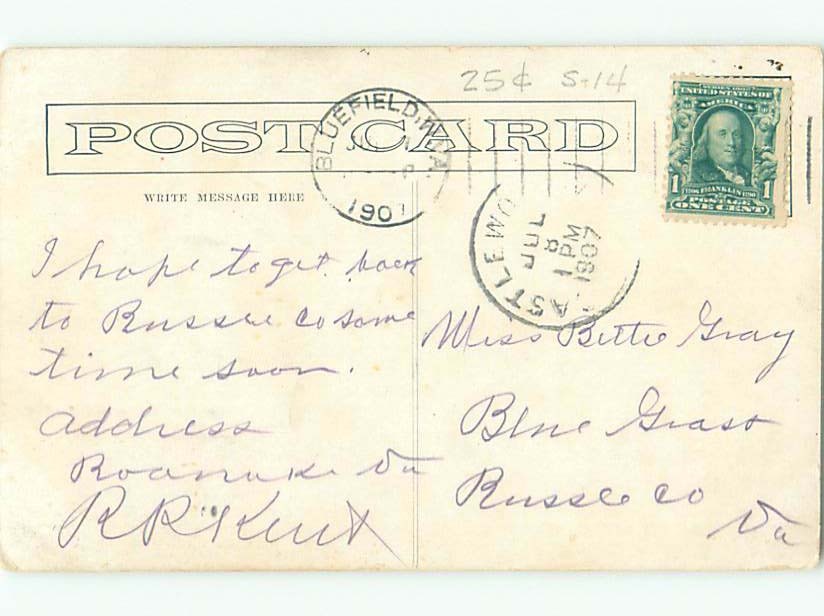 25¢ S-14
POST CARD
BLUEFIELD, W.VA.
1907
WRITE MESSAGE HERE
UNITED STATES OF AMERICA
1 FRANKLIN 1
POSTAGE
ONE CENT
ASTLEWO
JUL
8
1 PM
1907
I hope to get back
to Russee Co some
time soon.
address
Roanoke Va
R R Kent
Miss Bettie Gray
Blue Grass
Russee Co
Va